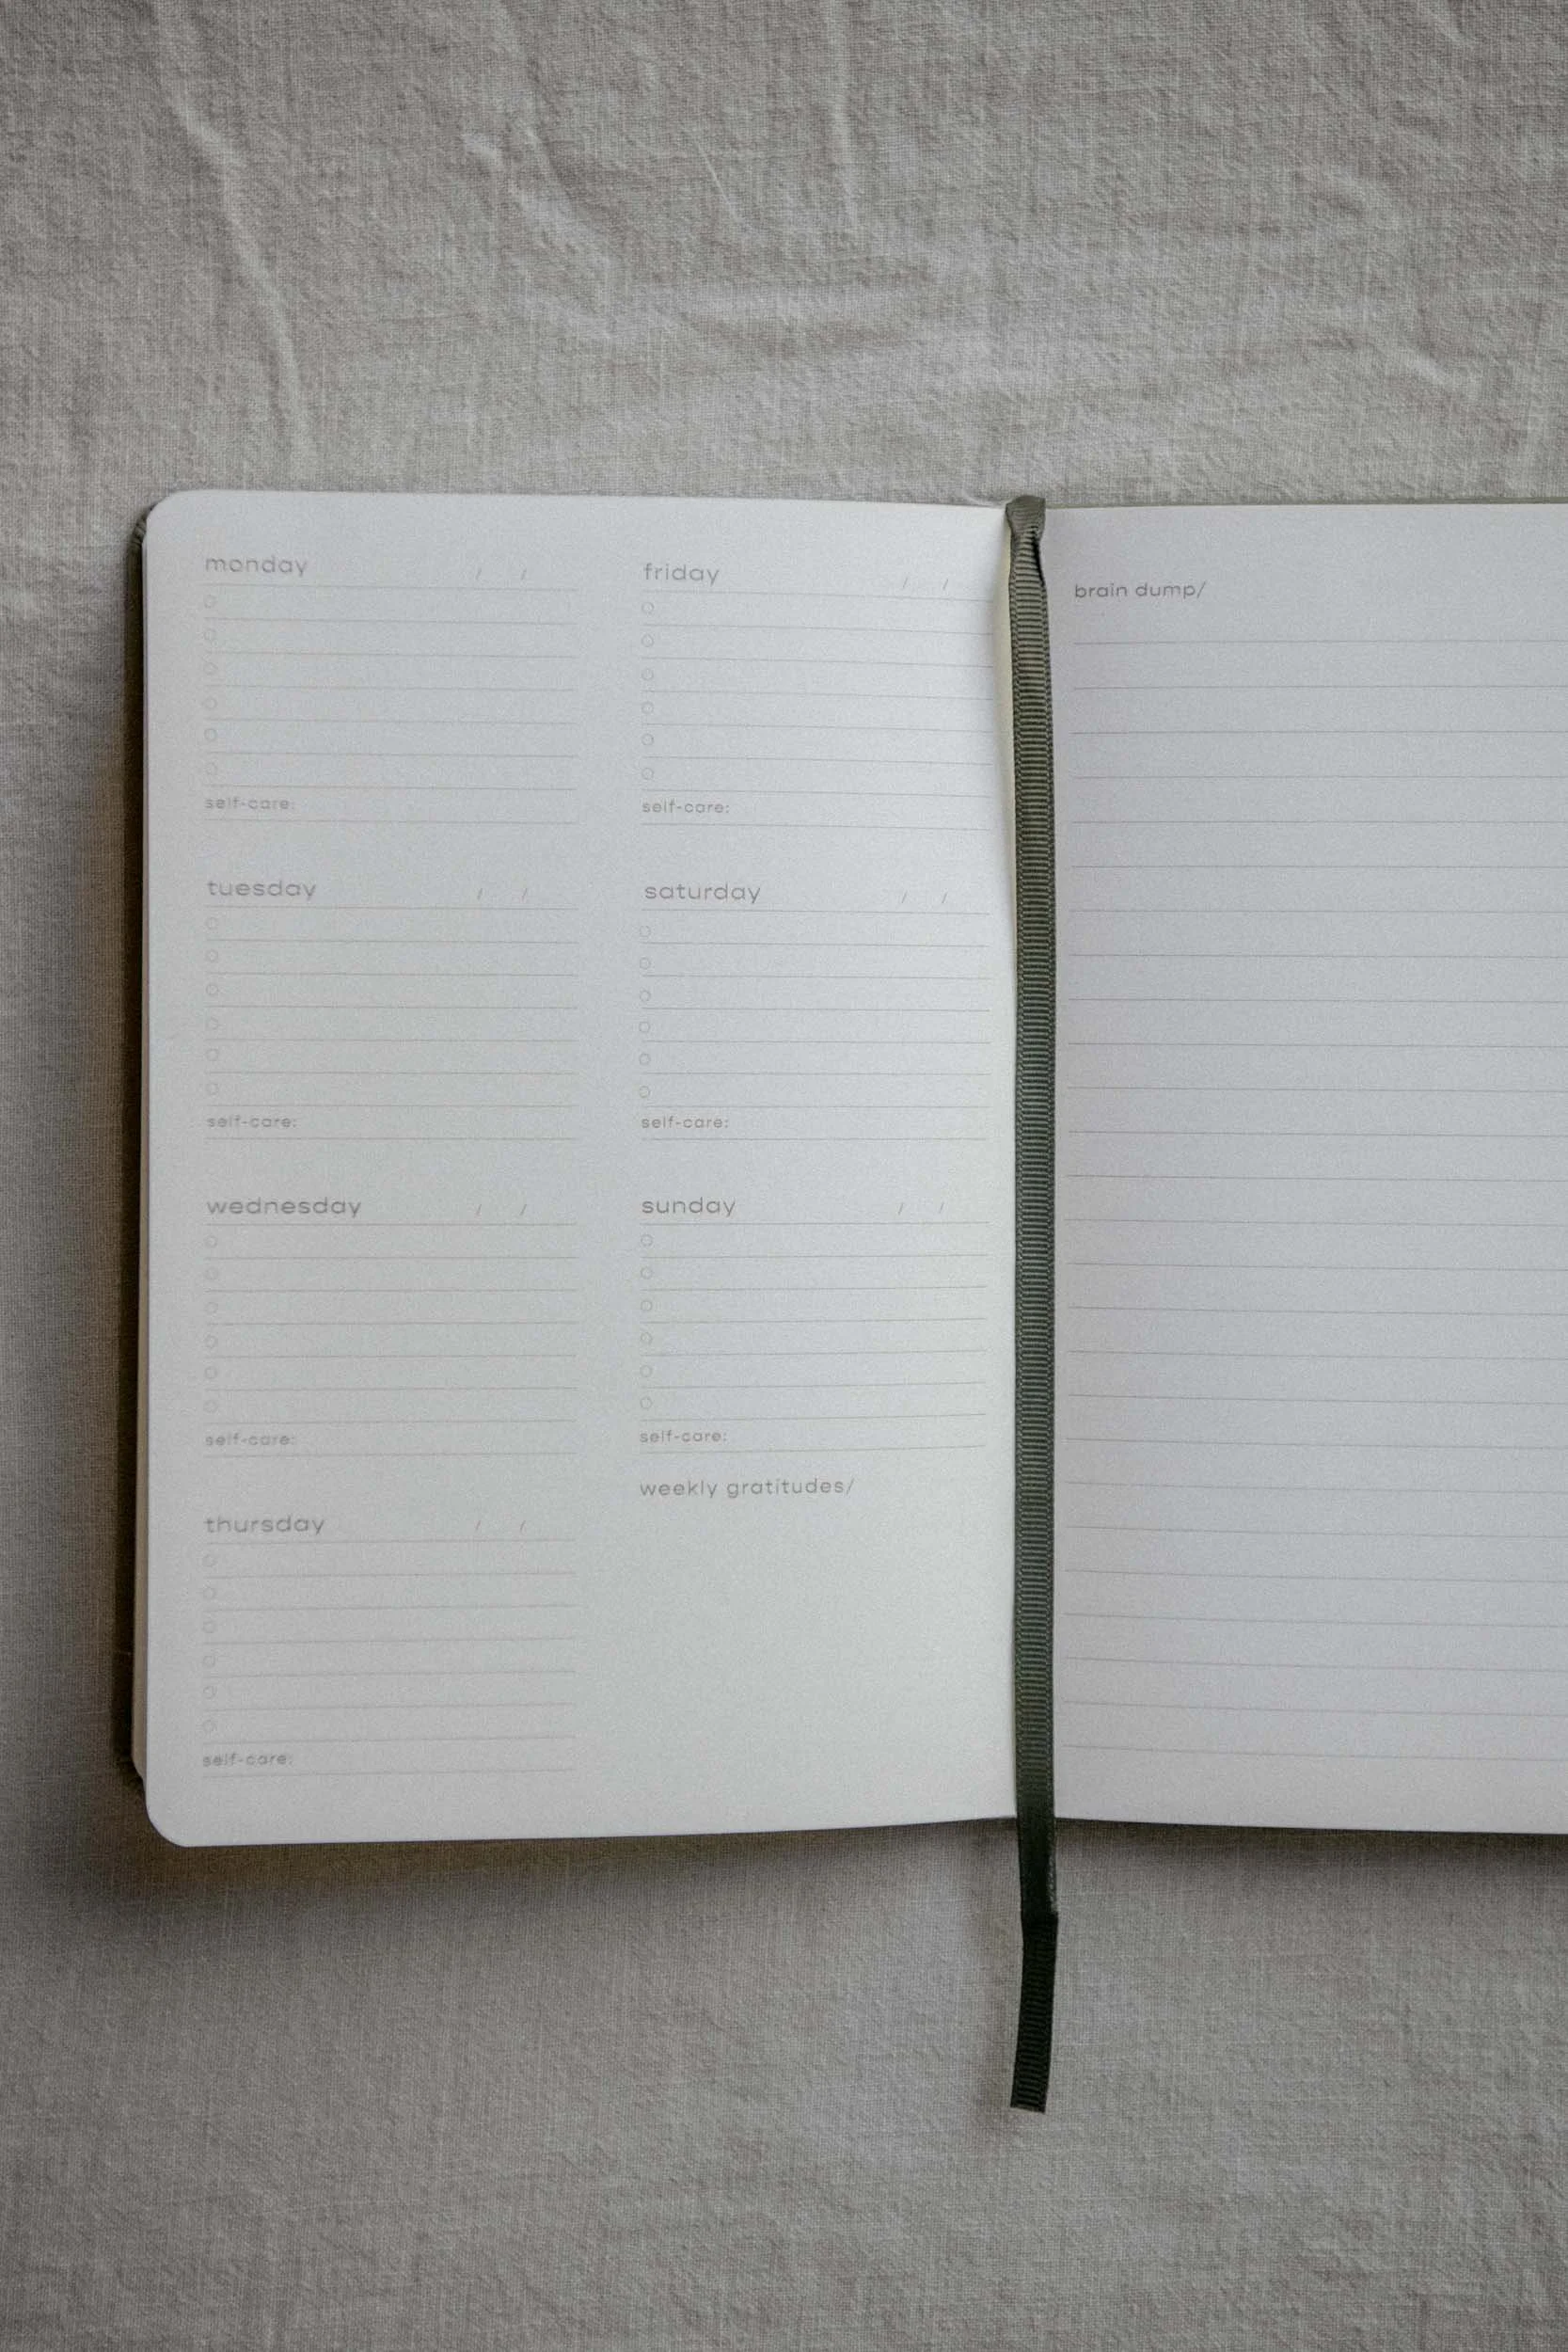 monday / /
self-care:
tuesday / /
self-care:
wednesday / /
self-care:
thursday / /
self-care:
friday / /
self-care:
saturday / /
self-care:
sunday / /
self-care:
weekly gratitudes/
brain dump/